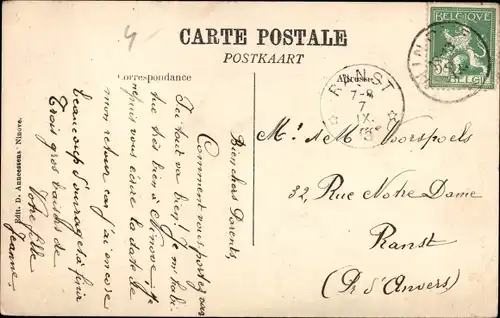 CARTE POSTALE
POSTKAART
Correspondance
Adresse
BELGIQUE
BELGI
RANST
7-8
7
IX
Bien chers Parents,
Comment vous portez vous
Ici tout va bien! Je m'habi
tue très bien à Ninove. Je
puis vous écrire la date de
mon retour car j'ai encore
beaucoup d'ouvrage à finir
Trois gros baisers de
Votre fille
Jeanne.
Edit. D. Anneessens, Ninove.
Mr et Me Voorspoels
32, Rue Notre Dame
Ranst
(Pr. d'Anvers)